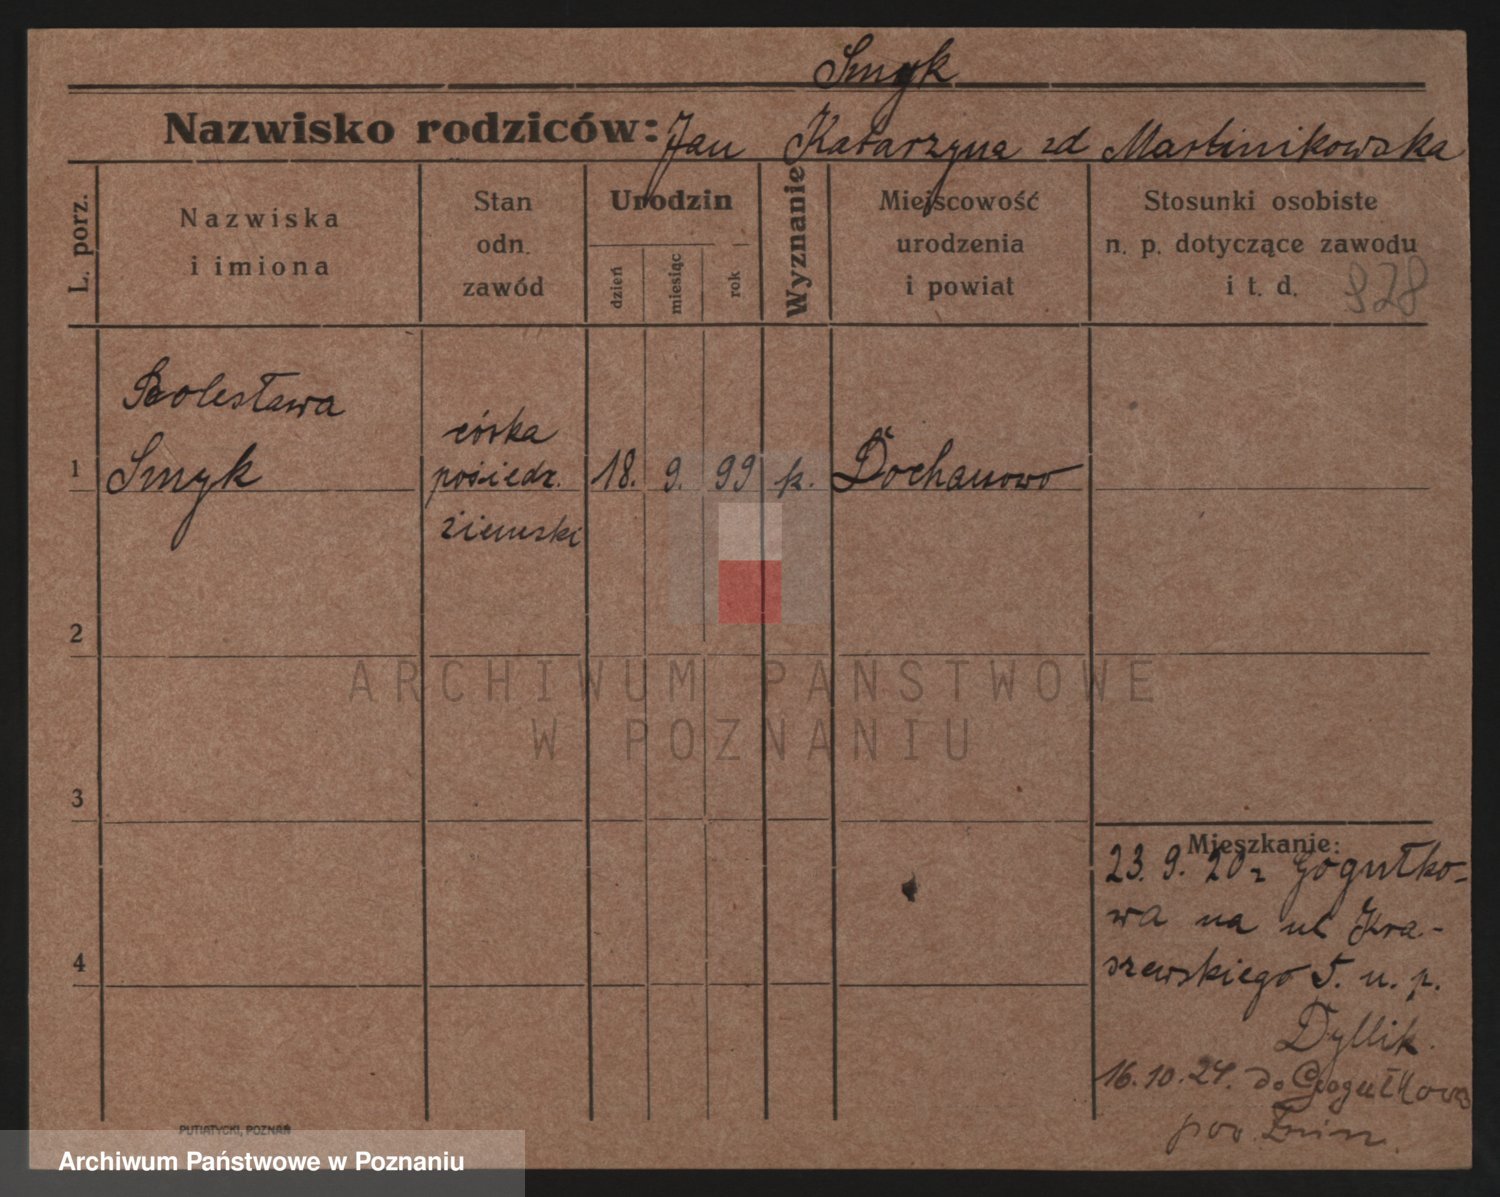 Smyk
Nazwisko rodziców: Jan Katarzyna zd Martinikowska
L. porz.
Nazwiska
i imiona
Stan
odn.
zawód
Urodzin
dzień
miesiąc
rok
Wyznanie
Miejscowość
urodzenia
i powiat
Stosunki osobiste
n. p. dotyczące zawodu
i t. d.
928
1
Bolesława
Smyk
córka
posiedz.
ziemski
18. 9. 99 k. Dochanowo
2
3
4
Mieszkanie:
23. 9. 20 z Gogułko-
wa na ul Kra-
szewskiego 5. u. p.
Dyllik.
16.10.24. do Gogułkowa
pow. Żnin.
ARCHIWUM PAŃSTWOWE
W POZNANIU
PUTIATYCKI, POZNAŃ
Archiwum Państwowe w Poznaniu